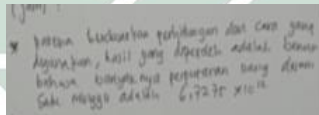 (jam) :
* karena berdasarkan perhitungan dan cara yang
digunakan, hasil yang diperoleh adalah benar
bahwa banyaknya perputaran uang dalam
satu minggu adalah 6,7275 × 10¹²